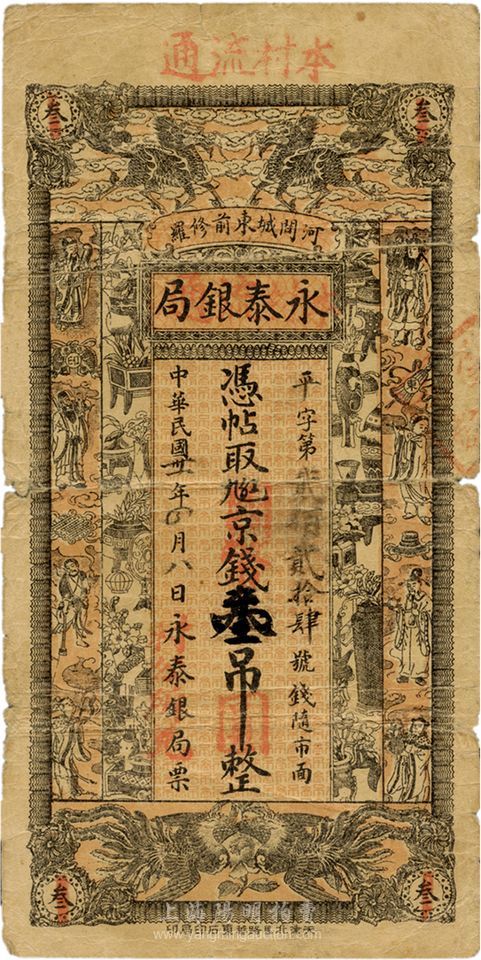 本村流通
叁 叁
河間城東前修羅
永泰銀局
平字第貳佰貳拾肆號錢隨市面
憑帖取京錢叁吊整
中華民國卅一年四月八日永泰銀局票
叁 叁
上海陽明拍賣
www.yangmingauction.com